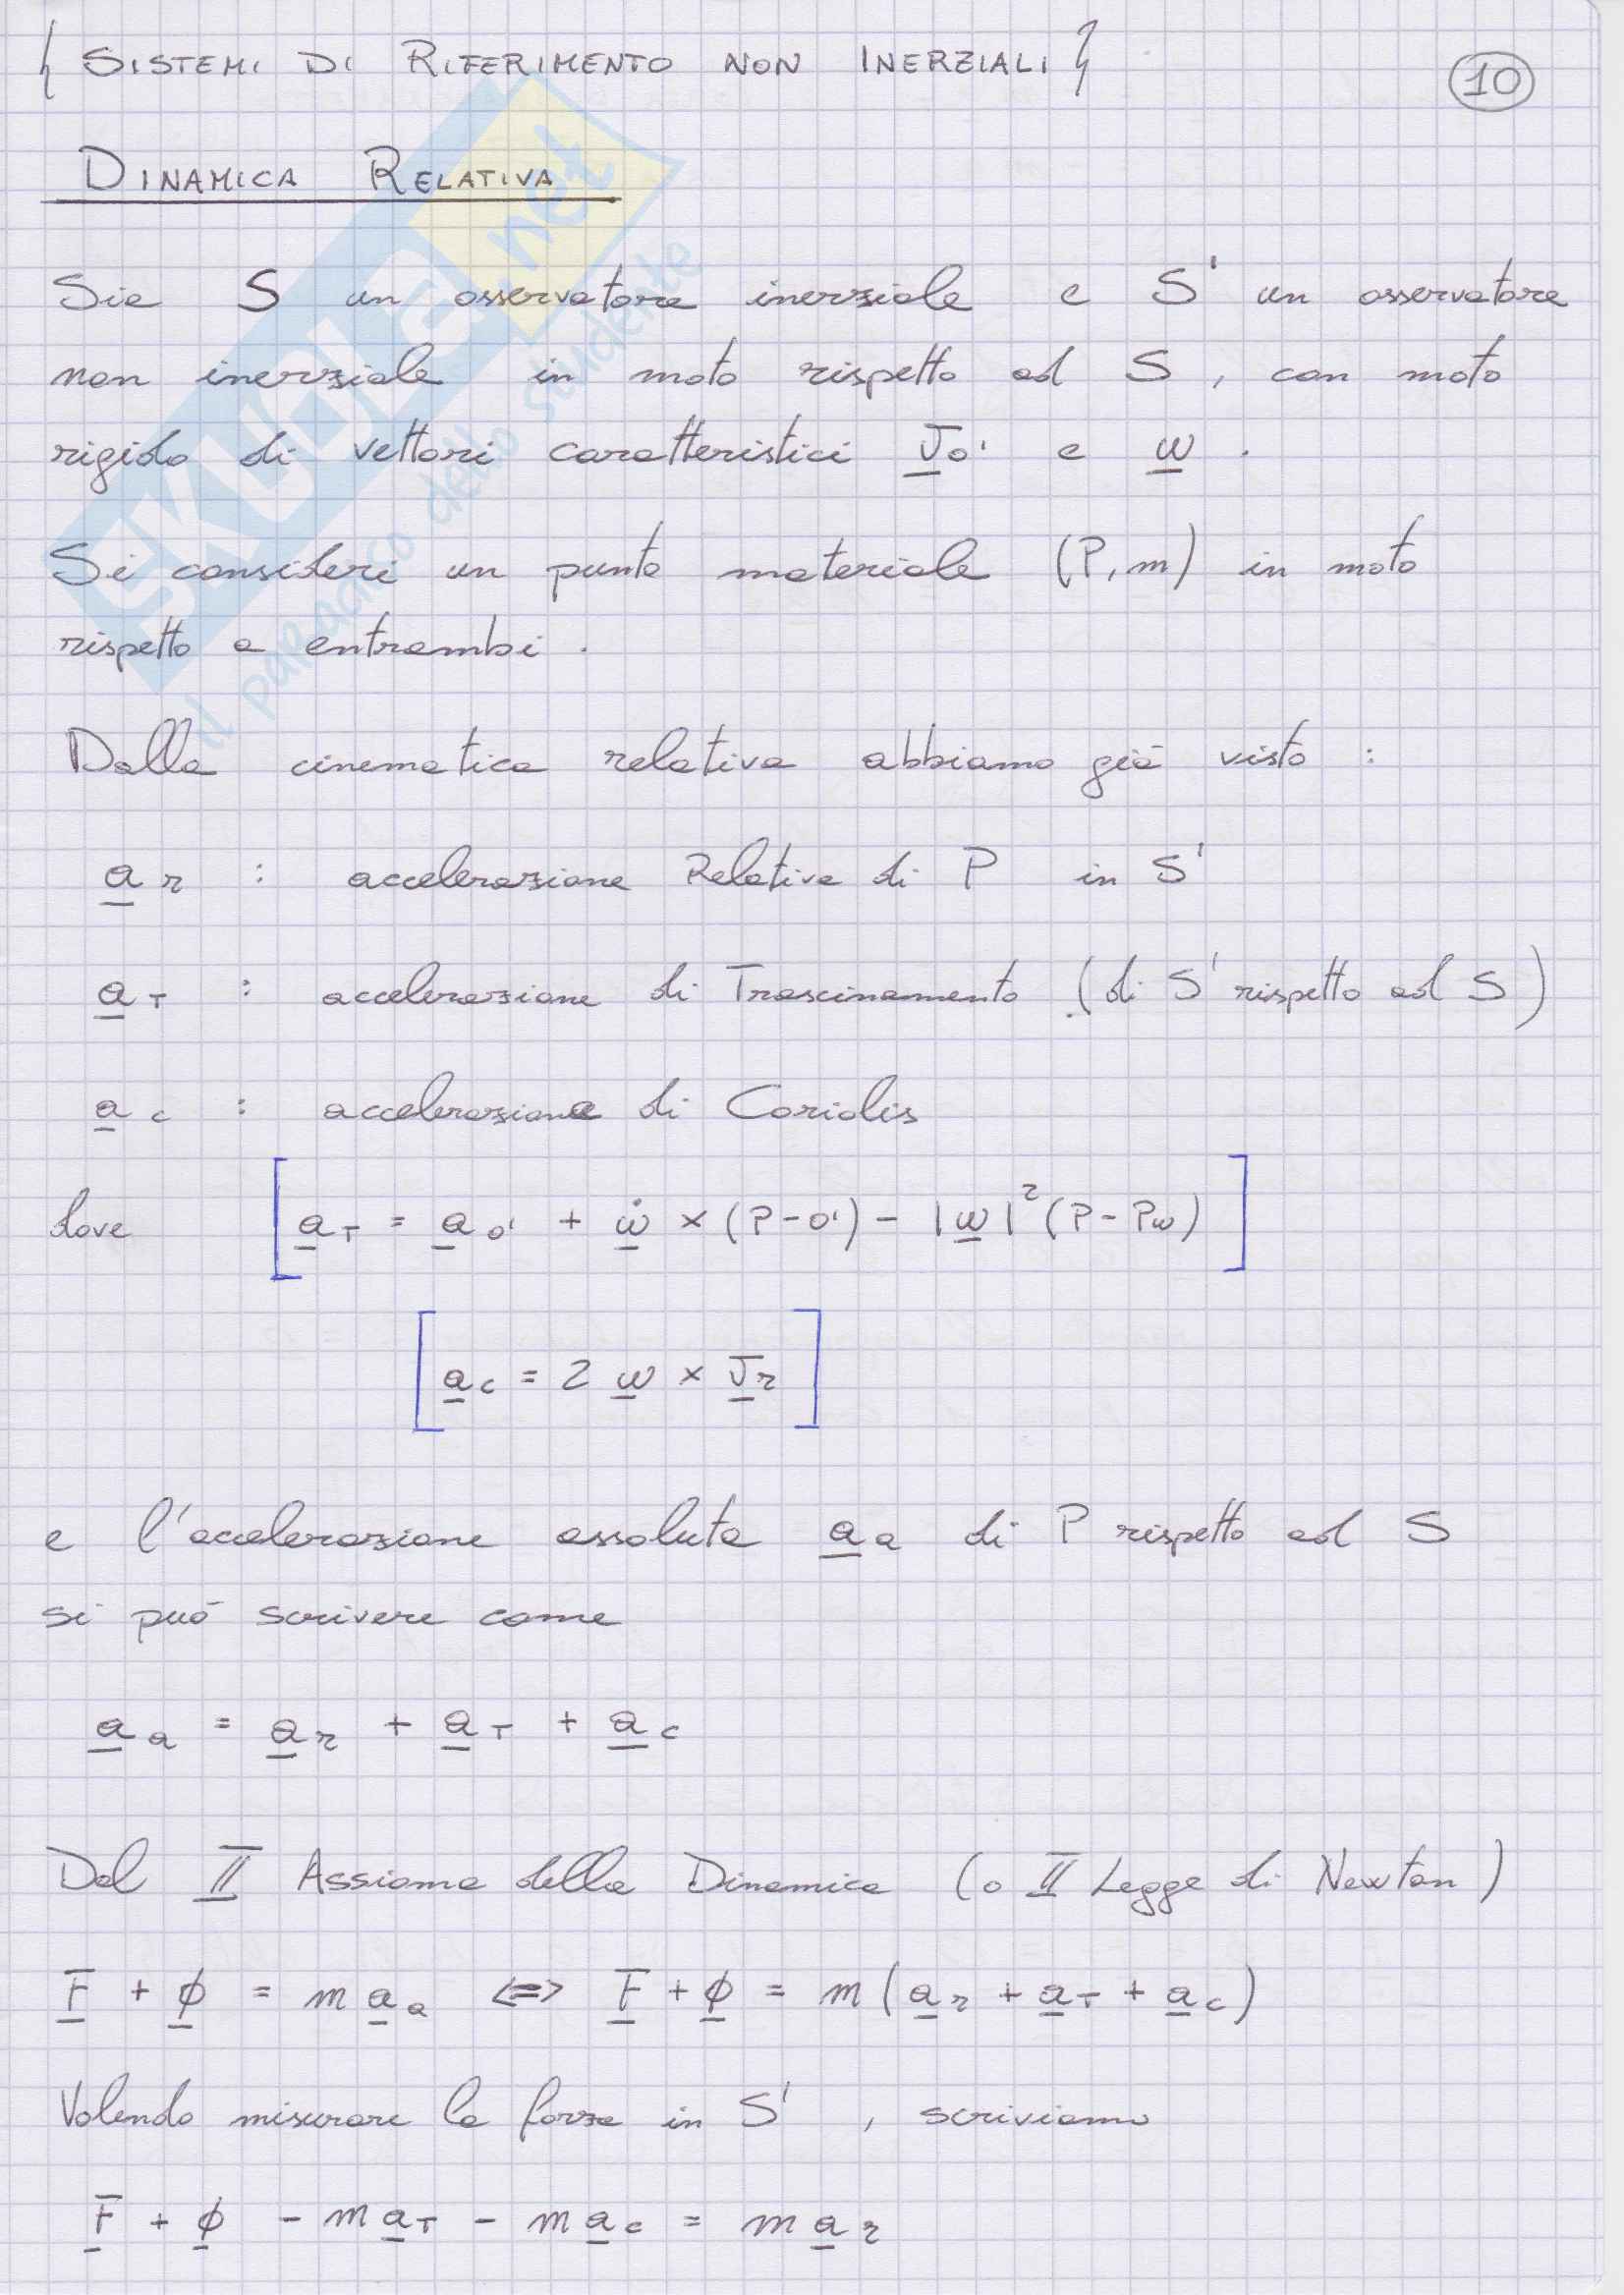 { SISTEMI DI RIFERIMENTO NON INERZIALI }
10
DINAMICA RELATIVA
Sia S un osservatore inerziale e S' un osservatore
non inerziale in moto rispetto ad S, con moto
rigido di vettori caratteristici v̲o' e ω̲.
Si consideri un punto materiale (P, m) in moto
rispetto a entrambi.
Dalla cinematica relativa abbiamo già visto:
a̲r : accelerazione Relativa di P in S'
a̲T : accelerazione di Trascinamento (di S' rispetto ad S)
a̲c : accelerazione di Coriolis
dove [a̲T = a̲o' + ω̲̇ × (P-O') - |ω̲|²(P-Pω)]
[a̲c = 2 ω̲ × v̲r]
e l'accelerazione assoluta a̲a di P rispetto ad S
si può scrivere come
a̲a = a̲r + a̲T + a̲c
Dal II Assioma della Dinamica (o II Legge di Newton)
F̲ + ϕ̲ = m a̲a <=> F̲ + ϕ̲ = m(a̲r + a̲T + a̲c)
Volendo misurare la forza in S', scriviamo
F̲ + ϕ̲ - m a̲T - m a̲c = m a̲r
SKUOLA.net
il paradiso dello studente